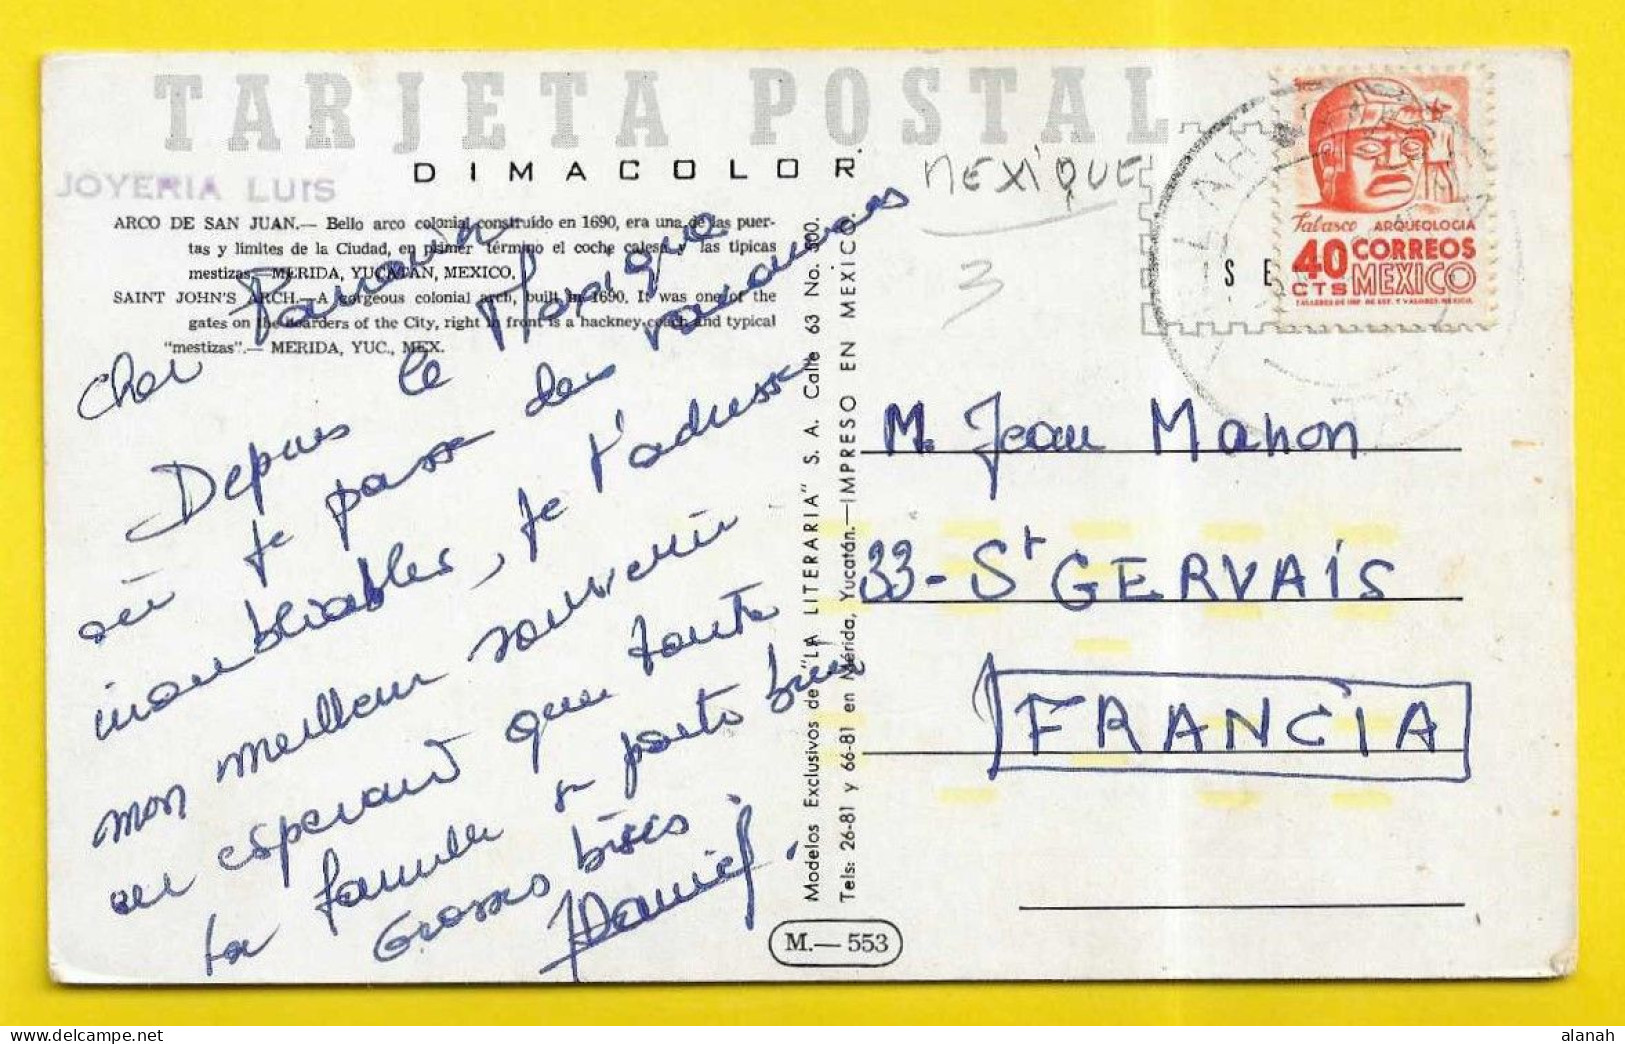 TARJETA POSTAL
DIMACOLOR
JOYERIA LUIS
MEXIQUE
3
ARCO DE SAN JUAN.— Bello arco colonial construído en 1690, era una de las puer-
tas y límites de la Ciudad, en primer término el coche calesa y las típicas
mestizas.—MERIDA, YUCATAN, MEXICO.
SAINT JOHN'S ARCH.—A gorgeous colonial arch, built in 1690. It was one of the
gates on the boarders of the City, right in front is a hackney coach and typical
"mestizas".— MERIDA, YUC., MEX.
Cher
Depuis le Mexique
où je passe des vacances
inoubliables, je t'adresse
mon meilleur souvenir
en espérant que toute
ta famille se porte bien
Grosses bises
Daniel.
Modelos Exclusivos de "LA LITERARIA" S. A. Calle 63 No. 500.
Tels: 26-81 y 66-81 en Mérida, Yucatán.—IMPRESO EN MEXICO.
M.— 553
SE
Tabasco ARQUEOLOGIA
40 CORREOS
CTS MEXICO
TALLERES DE IMP. DE EST. Y VALORES-MEXICO
M. Jean Mahon
33 - St GERVAIS
FRANCIA
alanah